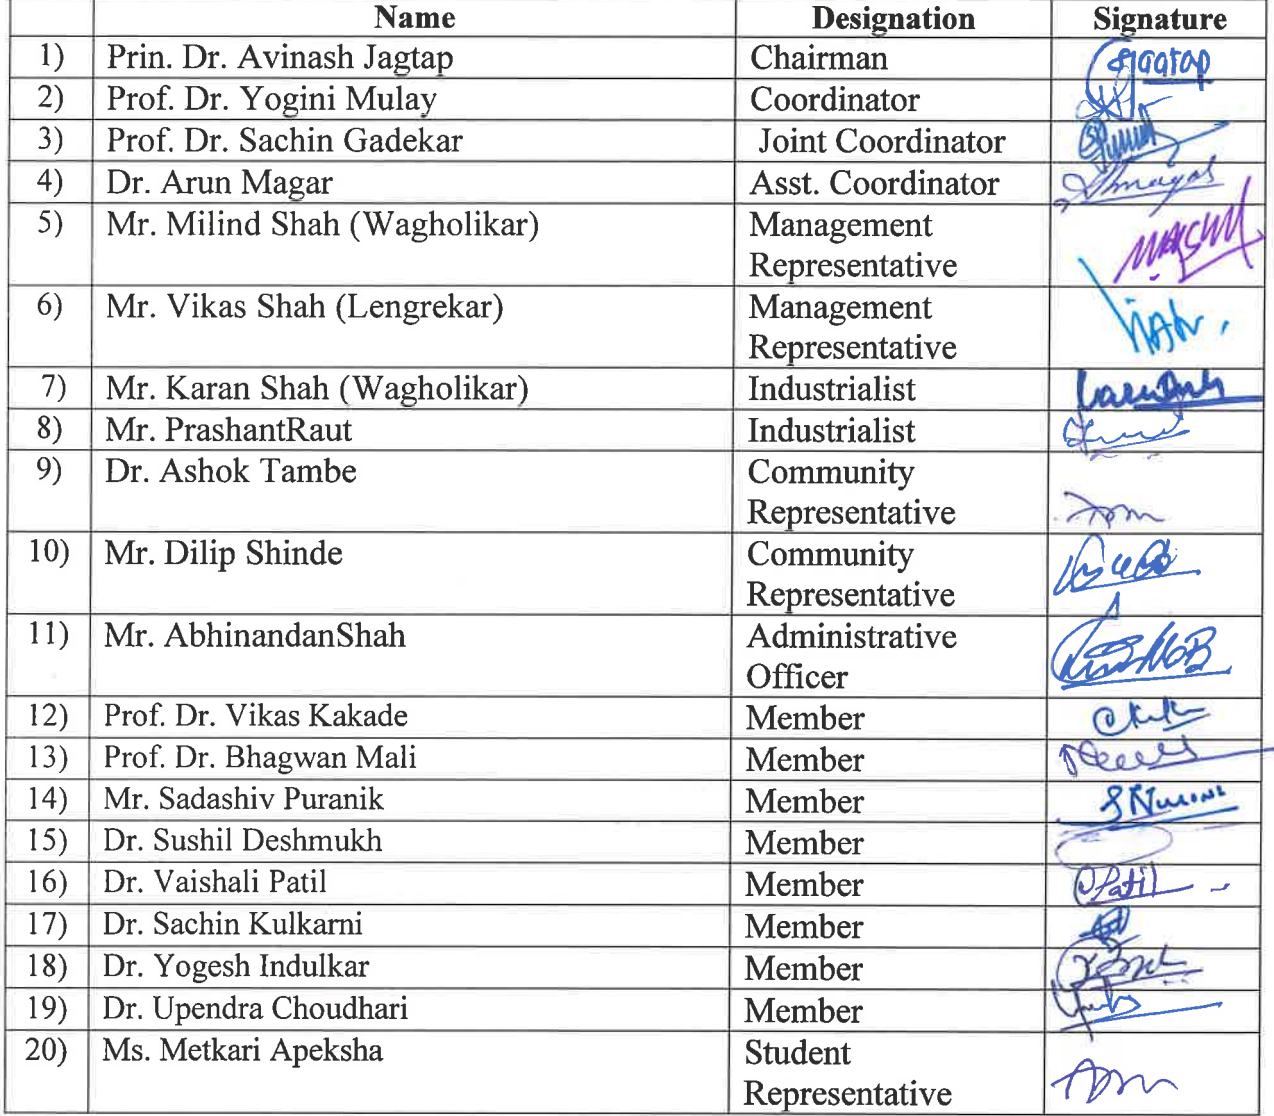 Name Designation Signature
1) Prin. Dr. Avinash Jagtap Chairman Jagtap
2) Prof. Dr. Yogini Mulay Coordinator
3) Prof. Dr. Sachin Gadekar Joint Coordinator
4) Dr. Arun Magar Asst. Coordinator
5) Mr. Milind Shah (Wagholikar) Management
Representative
6) Mr. Vikas Shah (Lengrekar) Management
Representative
7) Mr. Karan Shah (Wagholikar) Industrialist
8) Mr. PrashantRaut Industrialist
9) Dr. Ashok Tambe Community
Representative
10) Mr. Dilip Shinde Community
Representative
11) Mr. AbhinandanShah Administrative
Officer
12) Prof. Dr. Vikas Kakade Member
13) Prof. Dr. Bhagwan Mali Member
14) Mr. Sadashiv Puranik Member
15) Dr. Sushil Deshmukh Member
16) Dr. Vaishali Patil Member Patil
17) Dr. Sachin Kulkarni Member
18) Dr. Yogesh Indulkar Member
19) Dr. Upendra Choudhari Member
20) Ms. Metkari Apeksha Student
Representative